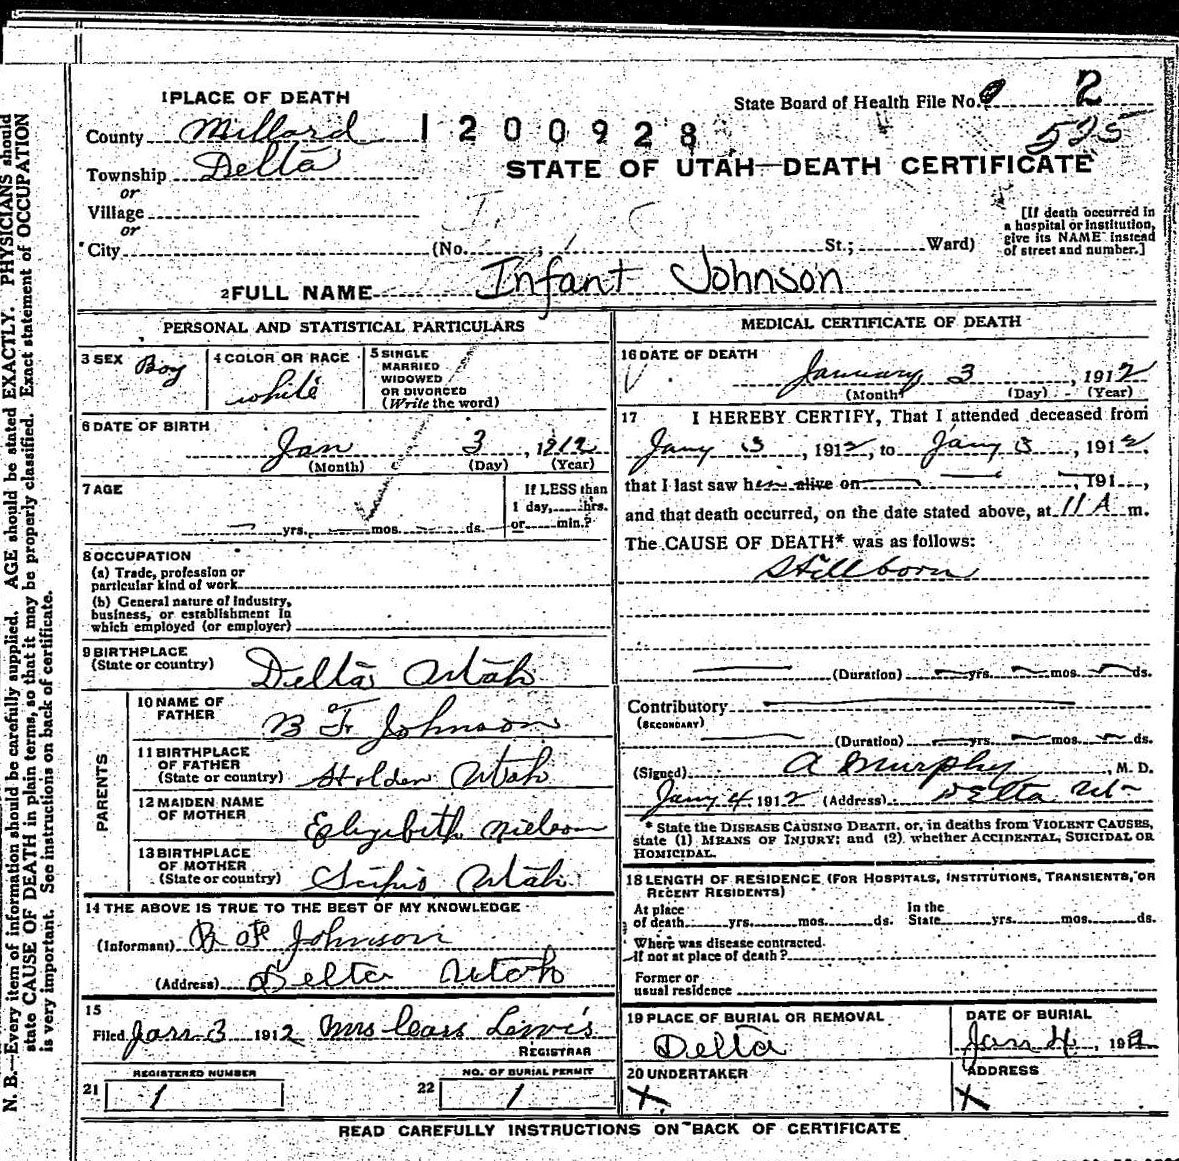 1 PLACE OF DEATH
State Board of Health File No. 2
County Millard 1200928
525
Township Delta
STATE OF UTAH—DEATH CERTIFICATE
or
Village
or
City (No. ; St.; Ward)
[If death occurred in
a hospital or institution,
give its NAME instead
of street and number.]
2 FULL NAME Infant Johnson
PERSONAL AND STATISTICAL PARTICULARS
3 SEX Boy
4 COLOR OR RACE
white
5 SINGLE
MARRIED
WIDOWED
OR DIVORCED
(Write the word)
6 DATE OF BIRTH
Jan 3, 1912
(Month) (Day) (Year)
7 AGE
yrs. mos. ds.
If LESS than
1 day, hrs.
or min.?
8 OCCUPATION
(a) Trade, profession or
particular kind of work
(b) General nature of industry,
business, or establishment in
which employed (or employer)
9 BIRTHPLACE
(State or country) Delta Utah
PARENTS
10 NAME OF
FATHER B F Johnson
11 BIRTHPLACE
OF FATHER
(State or country) Holden Utah
12 MAIDEN NAME
OF MOTHER Elizibith Nielson
13 BIRTHPLACE
OF MOTHER
(State or country) Scipio Utah
14 THE ABOVE IS TRUE TO THE BEST OF MY KNOWLEDGE
(Informant) B Johnson
(Address) Delta Utah
15
Filed Jan 3 1912 Mrs Lewis
REGISTRAR
REGISTERED NUMBER
21 1
NO. OF BURIAL PERMIT
22 1
MEDICAL CERTIFICATE OF DEATH
16 DATE OF DEATH
January 3, 1912
(Month) (Day) (Year)
17 I HEREBY CERTIFY, That I attended deceased from
Jany 3, 1912, to Jany 3, 1912,
that I last saw h alive on , 191 ,
and that death occurred, on the date stated above, at 11 A m.
The CAUSE OF DEATH* was as follows:
Stillborn
(Duration) yrs. mos. ds.
Contributory
(SECONDARY)
(Duration) yrs. mos. ds.
(Signed) A Murphy, M. D.
Jany 4 1912 (Address) Delta Ut
* State the DISEASE CAUSING DEATH, or, in deaths from VIOLENT CAUSES,
state (1) MEANS OF INJURY; and (2) whether ACCIDENTAL, SUICIDAL OR
HOMICIDAL.
18 LENGTH OF RESIDENCE (FOR HOSPITALS, INSTITUTIONS, TRANSIENTS, OR
RECENT RESIDENTS)
At place
of death yrs. mos. ds.
In the
State yrs. mos. ds.
Where was disease contracted.
if not at place of death?
Former or
usual residence
19 PLACE OF BURIAL OR REMOVAL
Delta
DATE OF BURIAL
Jan 4, 1912
20 UNDERTAKER
X
ADDRESS
X
READ CAREFULLY INSTRUCTIONS ON BACK OF CERTIFICATE
N. B.—Every item of information should be carefully supplied. AGE should be stated EXACTLY. PHYSICIANS should
state CAUSE OF DEATH in plain terms, so that it may be properly classified. Exact statement of OCCUPATION
is very important. See instructions on back of certificate.